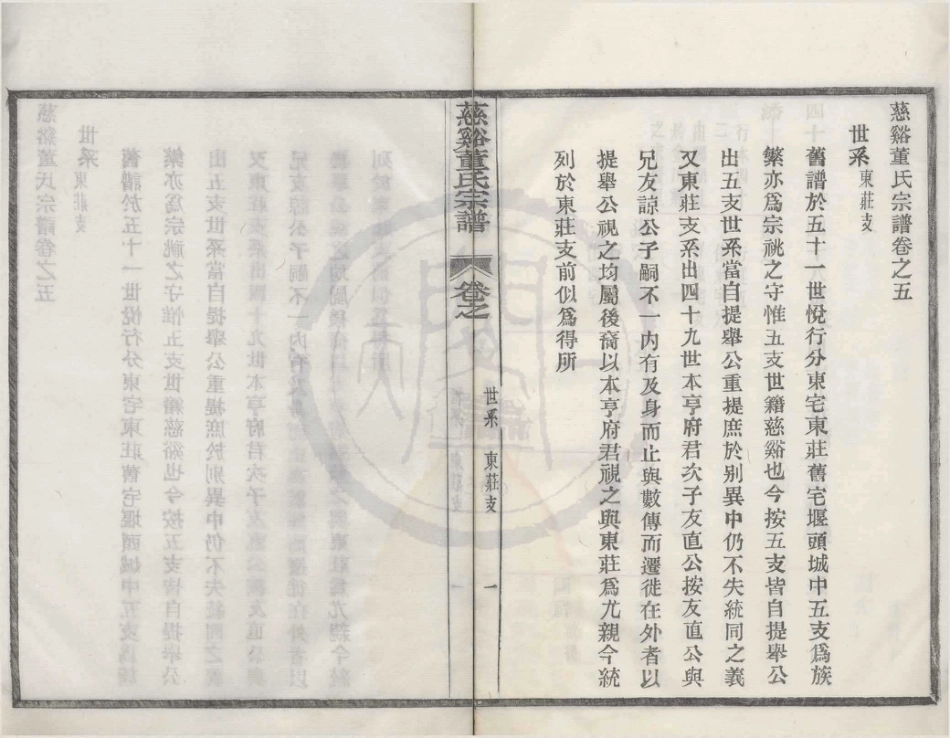 慈谿董氏宗譜卷之五
世系東莊支
舊譜於五十一世悅行分東宅東莊舊宅堰頭城中五支爲族
繁亦爲宗祧之守惟五支世籍慈谿也今按五支皆自提舉公
出五支世系當自提舉公重提庶於別異中仍不失統同之義
又東莊支系出四十九世本亨府君次子友直公按友直公與
兄友諒公子嗣不一内有及身而止與數傳而遷徙在外者以
提舉公視之均屬後裔以本亨府君視之與東莊爲尤親今統
列於東莊支前似爲得所
慈谿董氏宗譜
卷之
世系
東莊支
一